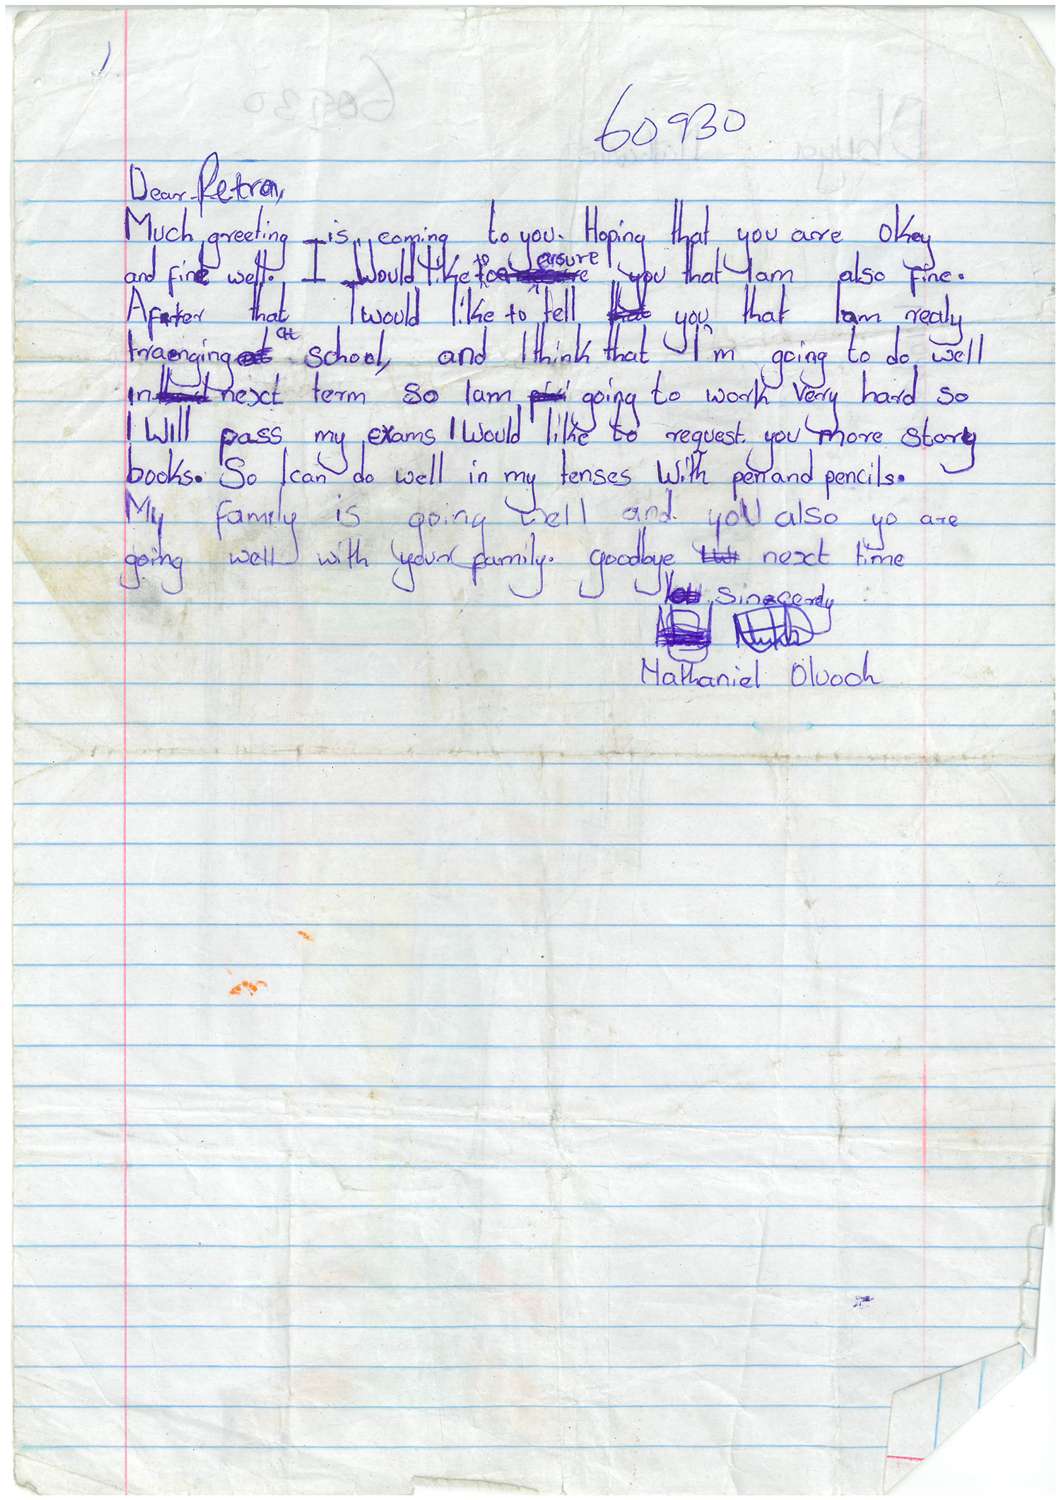 60930
Dear Petra,
Much greeting is coming to you. Hoping that you are Okey
and fine well. I Would like to ensure you that Iam also fine.
After that I would like to tell you that Iam realy
at school, and I think that I'm going to do well
in next term so Iam going to work very hard so
I Will pass my exams I Would like to request you more story
books. So I can do well in my tenses With pen and pencils.
My family is going well and you also yo are
going well with your family. goodbye next time
Sincerely
Nathaniel Oluoch